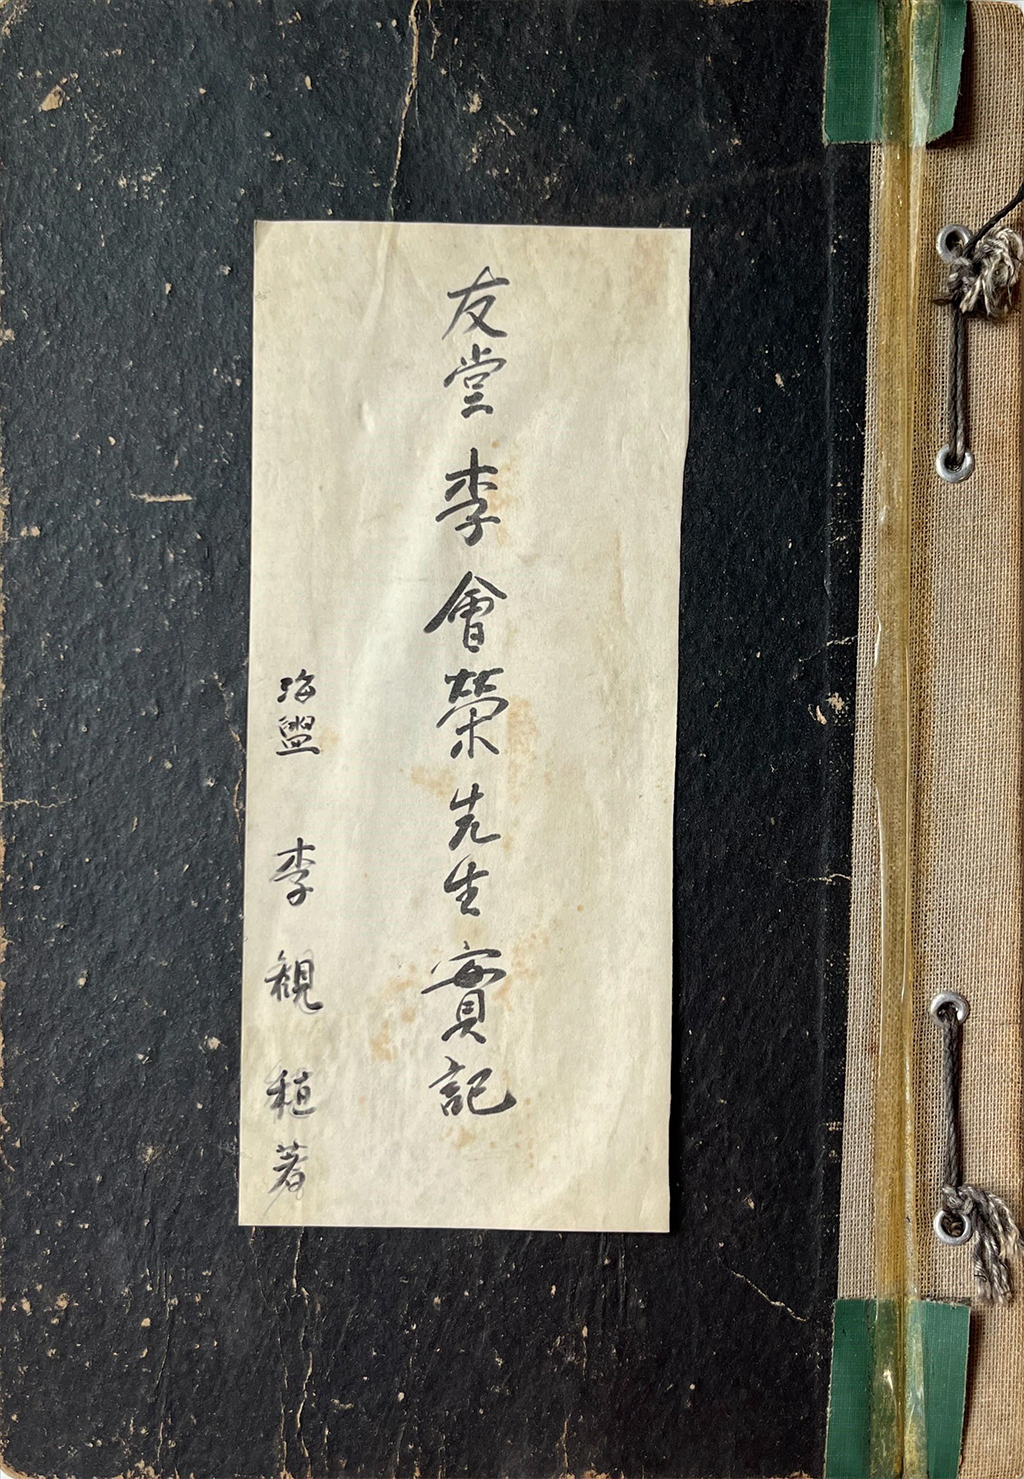 友堂 李會榮先生 實記
海盥 李観稙著